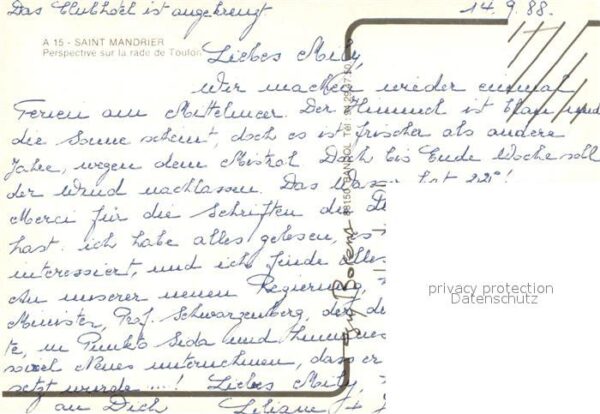 Das Clubhotel ist angekreuzt 14.9.88.
A 15 - SAINT MANDRIER
Perspective sur la rade de Toulon
Liebes Mity,
Wir machen wieder einmal
Ferien am Mittelmeer. Der Himmel ist blau und
die Sonne scheint, doch es ist frischer als andere
Jahre, wegen dem Mistral. Doch bis Ende Woche soll
der Wind nachlassen. Das Wasser hat 22°!
Merci für die Schriften die D
hast. ich habe alles gelesen, s
interessiert, und ich finde alles
An unserer neuen Regierung,
Minister, Prof. Schwarzenberg, der
te, in Punkto Sida und
soviel Neues unternehmen, dass er
setzt wurde ...! Liebes Mity,
an Dich Liliane +
83150 BANDOL Tél. 94.29
Guy Bovens
privacy protection
Datenschutz